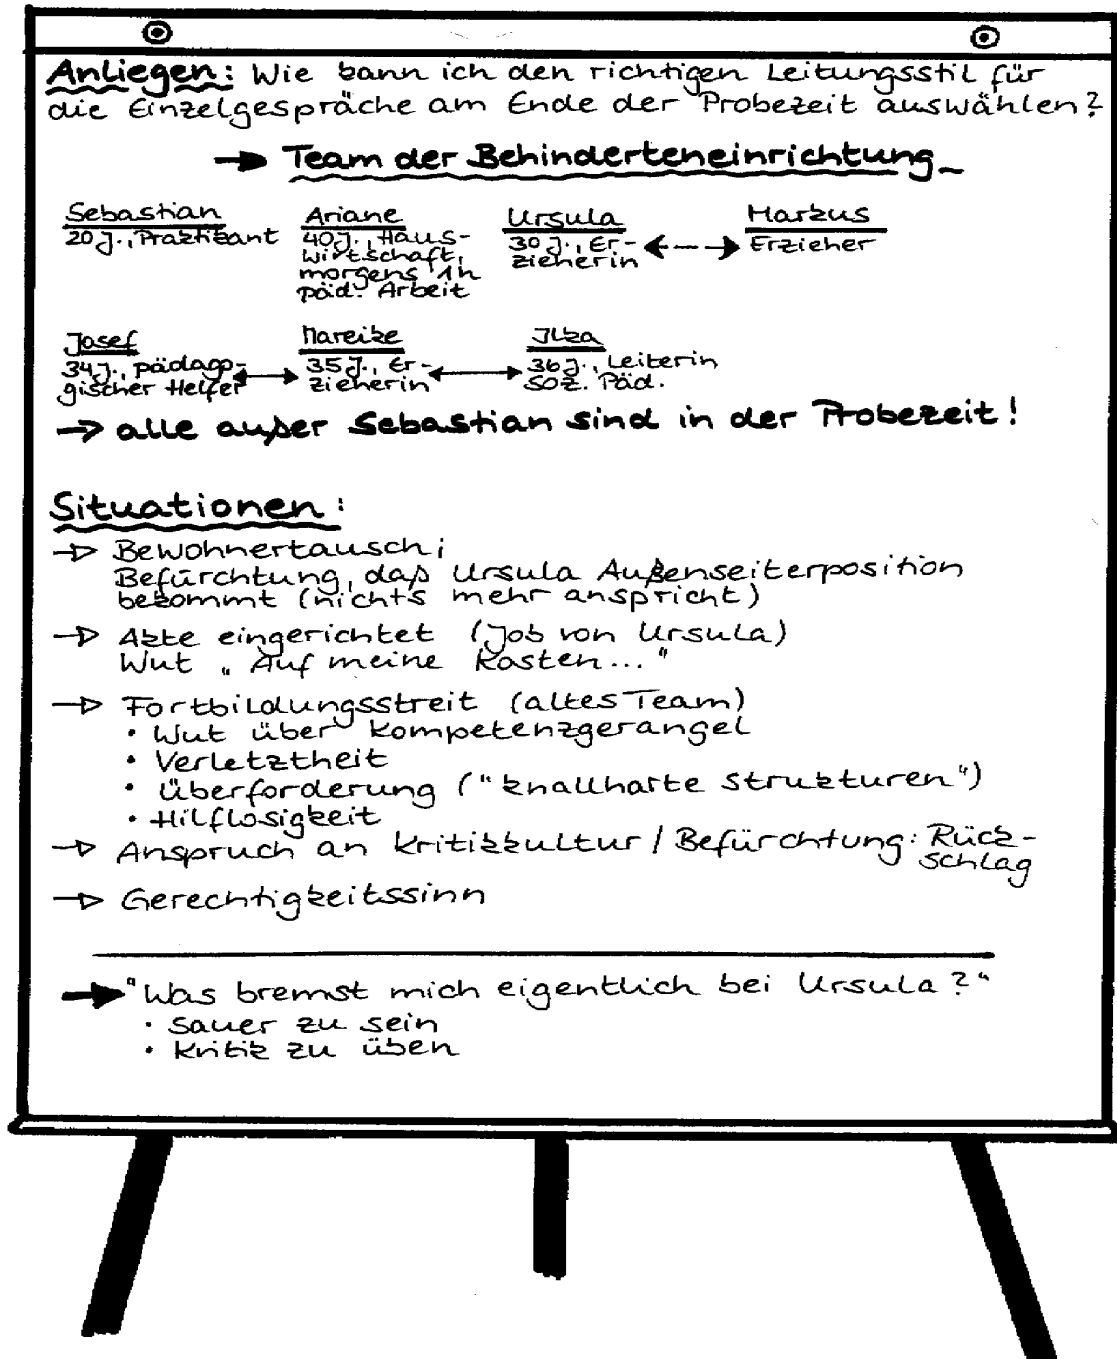 Anliegen: Wie kann ich den richtigen Leitungsstil für
die Einzelgespräche am Ende der Probezeit auswählen?
→ Team der Behinderteneinrichtung
Sebastian
20 J., Praktikant
Ariane
40 J., Haus-
wirtschaft,
morgens 1h
päd. Arbeit
Ursula
30 J., Er-
zieherin
Markus
Erzieher
Josef
34 J., pädago-
gischer Helfer
Mareike
35 J., Er-
zieherin
Ilka
36 J., Leiterin
Soz. Päd.
→ alle außer Sebastian sind in der Probezeit!
Situationen:
→ Bewohnertausch;
Befürchtung, daß Ursula Außenseiterposition
bekommt (nichts mehr anspricht)
→ Akte eingerichtet (Job von Ursula)
Wut „Auf meine Kosten..."
→ Fortbildungsstreit (altes Team)
• Wut über Kompetenzgerangel
• Verletztheit
• Überforderung ("knallharte Strukturen")
• Hilflosigkeit
→ Anspruch an Kritikkultur / Befürchtung: Rück-
schlag
→ Gerechtigkeitssinn
→ "Was bremst mich eigentlich bei Ursula?"
• Sauer zu sein
• Kritik zu üben